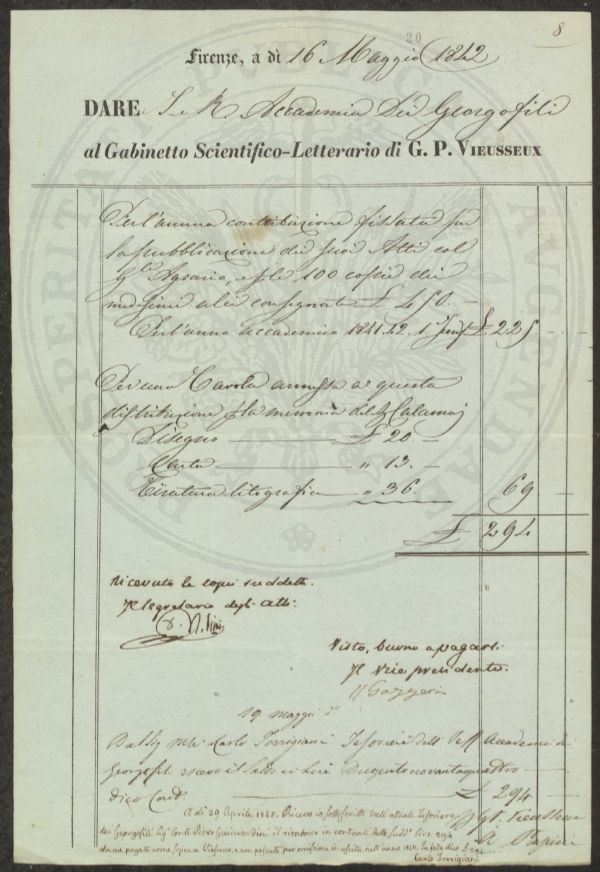 8
20
Firenze, a dì 16 Maggio 1842
DARE I. e R. Accademia Dei Georgofili
al Gabinetto Scientifico-Letterario di G. P. Vieusseux
Per l'annua contribuzione fissata per
la pubblicazione dei suoi Atti col
Gle Agrario, e ple 100 copie dei
medesimi a lei consegnate £ 450. —
Per l'anno accademico 1841.42 1° Sem. £ 225 —
Per una Tavola annessa a questa
distribuzione p la memoria del Calamaj
Disegno — £ 20
Carta — " 13. —
Tiratura litografica — " 36. 69 —
£ 294 —
Ricevuto le copie suddette.
Il Segretario degli Atti.
Visto, buono a pagarsi.
Il Vice presidente.
G. Gazzeri
19 maggio do
Dall' Carlo Torrigiani Tesoriere dell' Accademia dei
Georgofili ricevo il saldo in lire Dugentonovantaquattro
dico £ 294 —
Pr Vieusseux
A. Papini
A dì 29 Aprile 1845. Ricevo io sottoscritto dall'attuale Tesoriere
dei Georgofili Sig. Conte Piero Guicciardini il rimborso in contanti delle sudd. lire 294
da me pagate come sopra a Vieusseux, e non passate per omissione in uscita nell'anno In fede dico £ 294
Carlo Torrigiani
PROSPERITATI PUBLICAE AUGENDAE